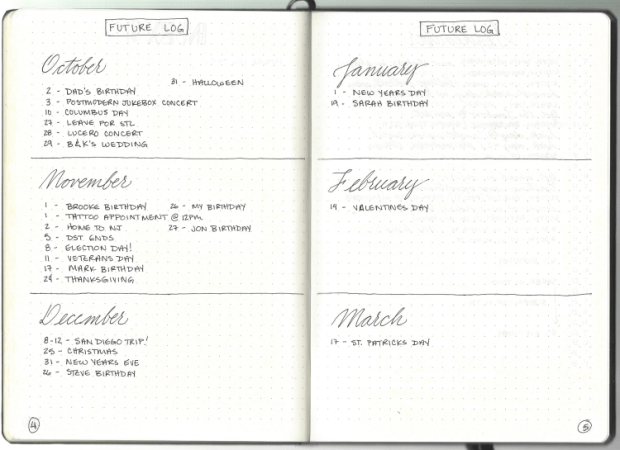 FUTURE LOG
October
2 - DAD'S BIRTHDAY
3 - POSTMODERN JUKEBOX CONCERT
10 - COLUMBUS DAY
27 - LEAVE FOR STL
28 - LUCERO CONCERT
29 - B&K'S WEDDING
31 - HALLOWEEN
November
1 - BROOKE BIRTHDAY
1 - TATTOO APPOINTMENT @ 12PM
2 - HOME TO NJ
5 - DST ENDS
8 - ELECTION DAY!
11 - VETERANS DAY
17 - MARK BIRTHDAY
24 - THANKSGIVING
26 - MY BIRTHDAY
27 - JON BIRTHDAY
December
8-12 - SAN DIEGO TRIP!
25 - CHRISTMAS
31 - NEW YEARS EVE
26 - STEVE BIRTHDAY
4
FUTURE LOG
January
1 - NEW YEARS DAY
19 - SARAH BIRTHDAY
February
14 - VALENTINES DAY
March
17 - ST. PATRICKS DAY
5